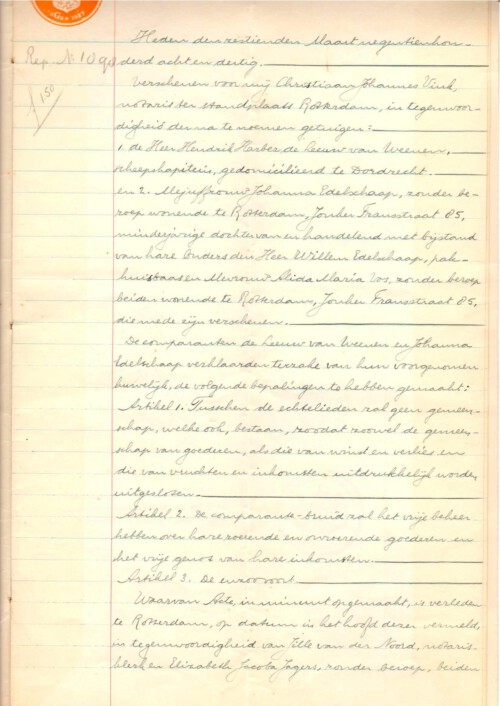 Heden den zestienden Maart negentienhon-
derd acht en dertig.
Rep. N. 1090
Verschenen voor mij Christiaan Johannes Vink,
notaris ter standplaats Rotterdam, in tegenwoor-
digheid der na te noemen getuigen:
1.50
1. de Heer Hendrik Harber de Leeuw van Weenen,
scheepskapitein, gedomicilieerd te Dordrecht.
en 2. Mejuffrouw Johanna Edelschaap, zonder be-
roep wonende te Rotterdam, Jonker Fransstraat 85,
minderjarige dochter van en handelend met bijstand
van hare ouders den Heer Willem Edelschaap, pak-
huisbaas en Mevrouw Alida Maria Vos, zonder beroep
beiden wonende te Rotterdam, Jonker Fransstraat 85,
die mede zijn verschenen.
De comparanten de Leeuw van Weenen en Johanna
Edelschaap verklaarden terzake van hun voorgenomen
huwelijk, de volgende bepalingen te hebben gemaakt:
Artikel 1. Tusschen de echtelieden zal geen gemeen-
schap, welke ook, bestaan, zoodat zoowel de gemeen-
schap van goederen, als die van winst en verlies en
die van vruchten en inkomsten uitdrukkelijk worden
uitgesloten.
Artikel 2. De comparante-bruid zal het vrije beheer
hebben over hare roerende en onroerende goederen en
het vrije genot van hare inkomsten.
Artikel 3. De enzoovoort
Waarvan Acte, in minuut opgemaakt, is verleden
te Rotterdam, op datum in het hoofd dezer vermeld,
in tegenwoordigheid van Jille van der Noord, notaris-
klerk en Elizabeth Jacoba Jagers, zonder beroep, beiden